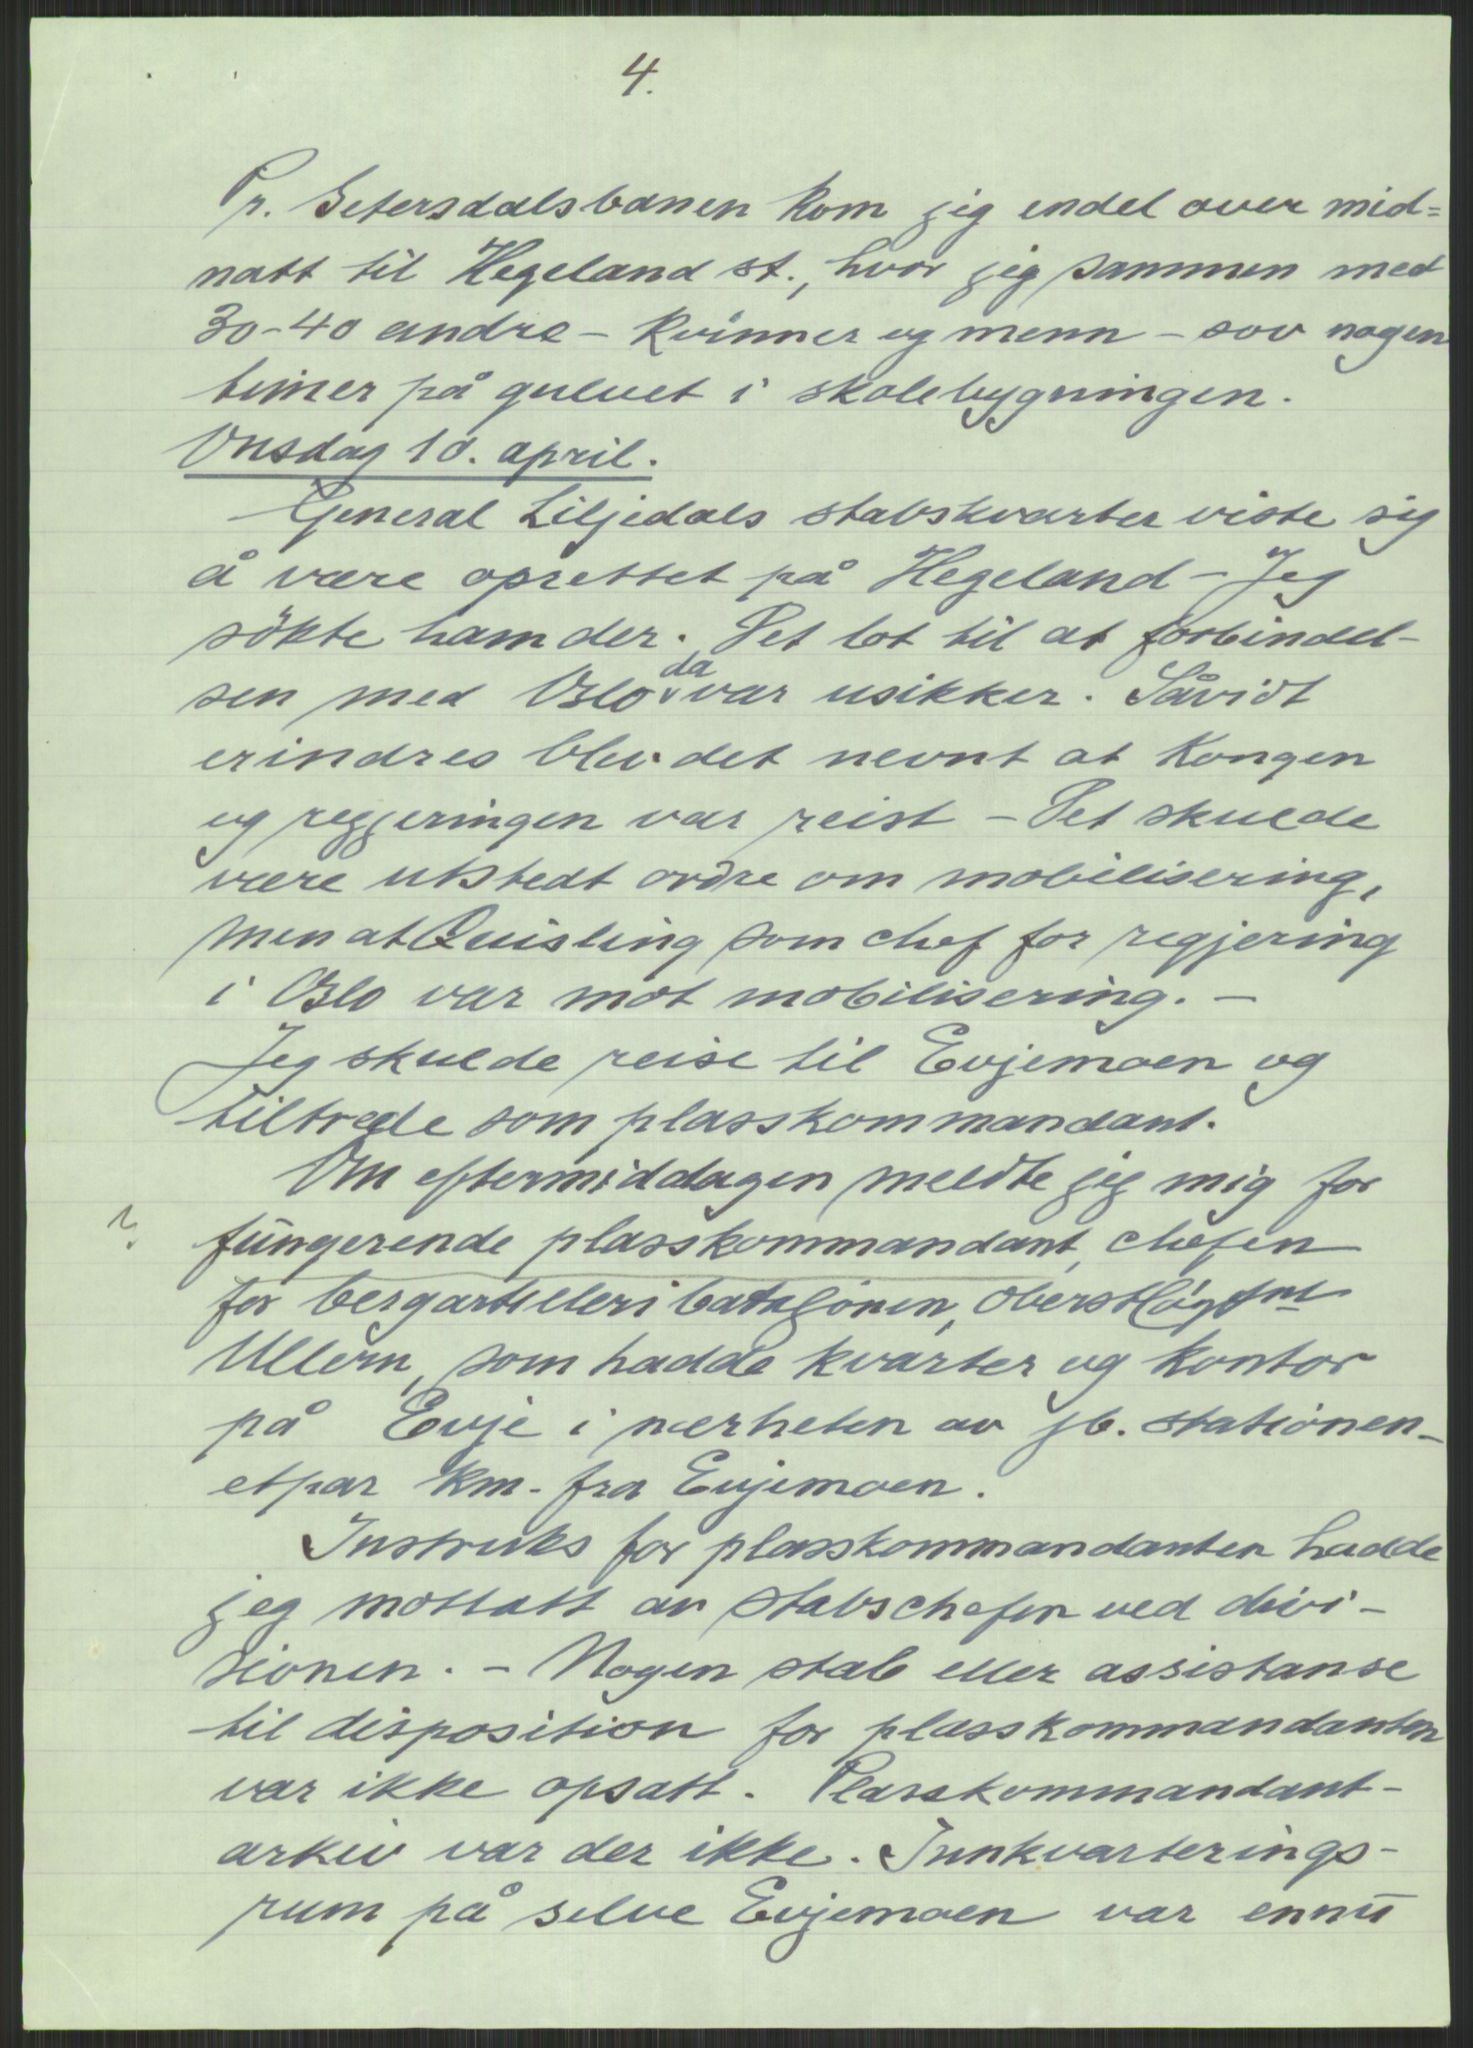 4.
Pr. Setersdalsbanen kom jeg endel over mid=
natt til Hegeland st., hvor jeg sammen med
30-40 andre - kvinner og menn - sov nogen
timer på gulvet i skolebygningen.
Onsdag 10. april.
General Liljedals stabskvarter viste sig
å være oprettet på Hegeland - Jeg
søkte ham der. Det lot til at forbindel-
sen med Oslo da var usikker. Såvidt
erindres blev det nevnt at Kongen
og regjeringen var reist - Det skulde
være utstedt ordre om mobilisering,
men at Quisling som chef for regjering
i Oslo var mot mobilisering. -
Jeg skulde reise til Evjemoen og
tiltrede som plasskommandant.
Om eftermiddagen meldte jeg mig for
? fungerende plasskommandant, chefen
for bergartilleribataljonen, oberstløytnt
Ullern, som hadde kvarter og kontor
på Evje i nærheten av jb. stationen -
etpar km. fra Evjemoen.
Instruks for plasskommandanten hadde
jeg mottatt av stabschefen ved divi-
sionen. - Nogen stab eller assistanse
til disposition for plasskommandanten
var ikke opsatt. Plasskommandant-
arkiv var der ikke. Innkvarterings-
rum på selve Evjemoen var ennu